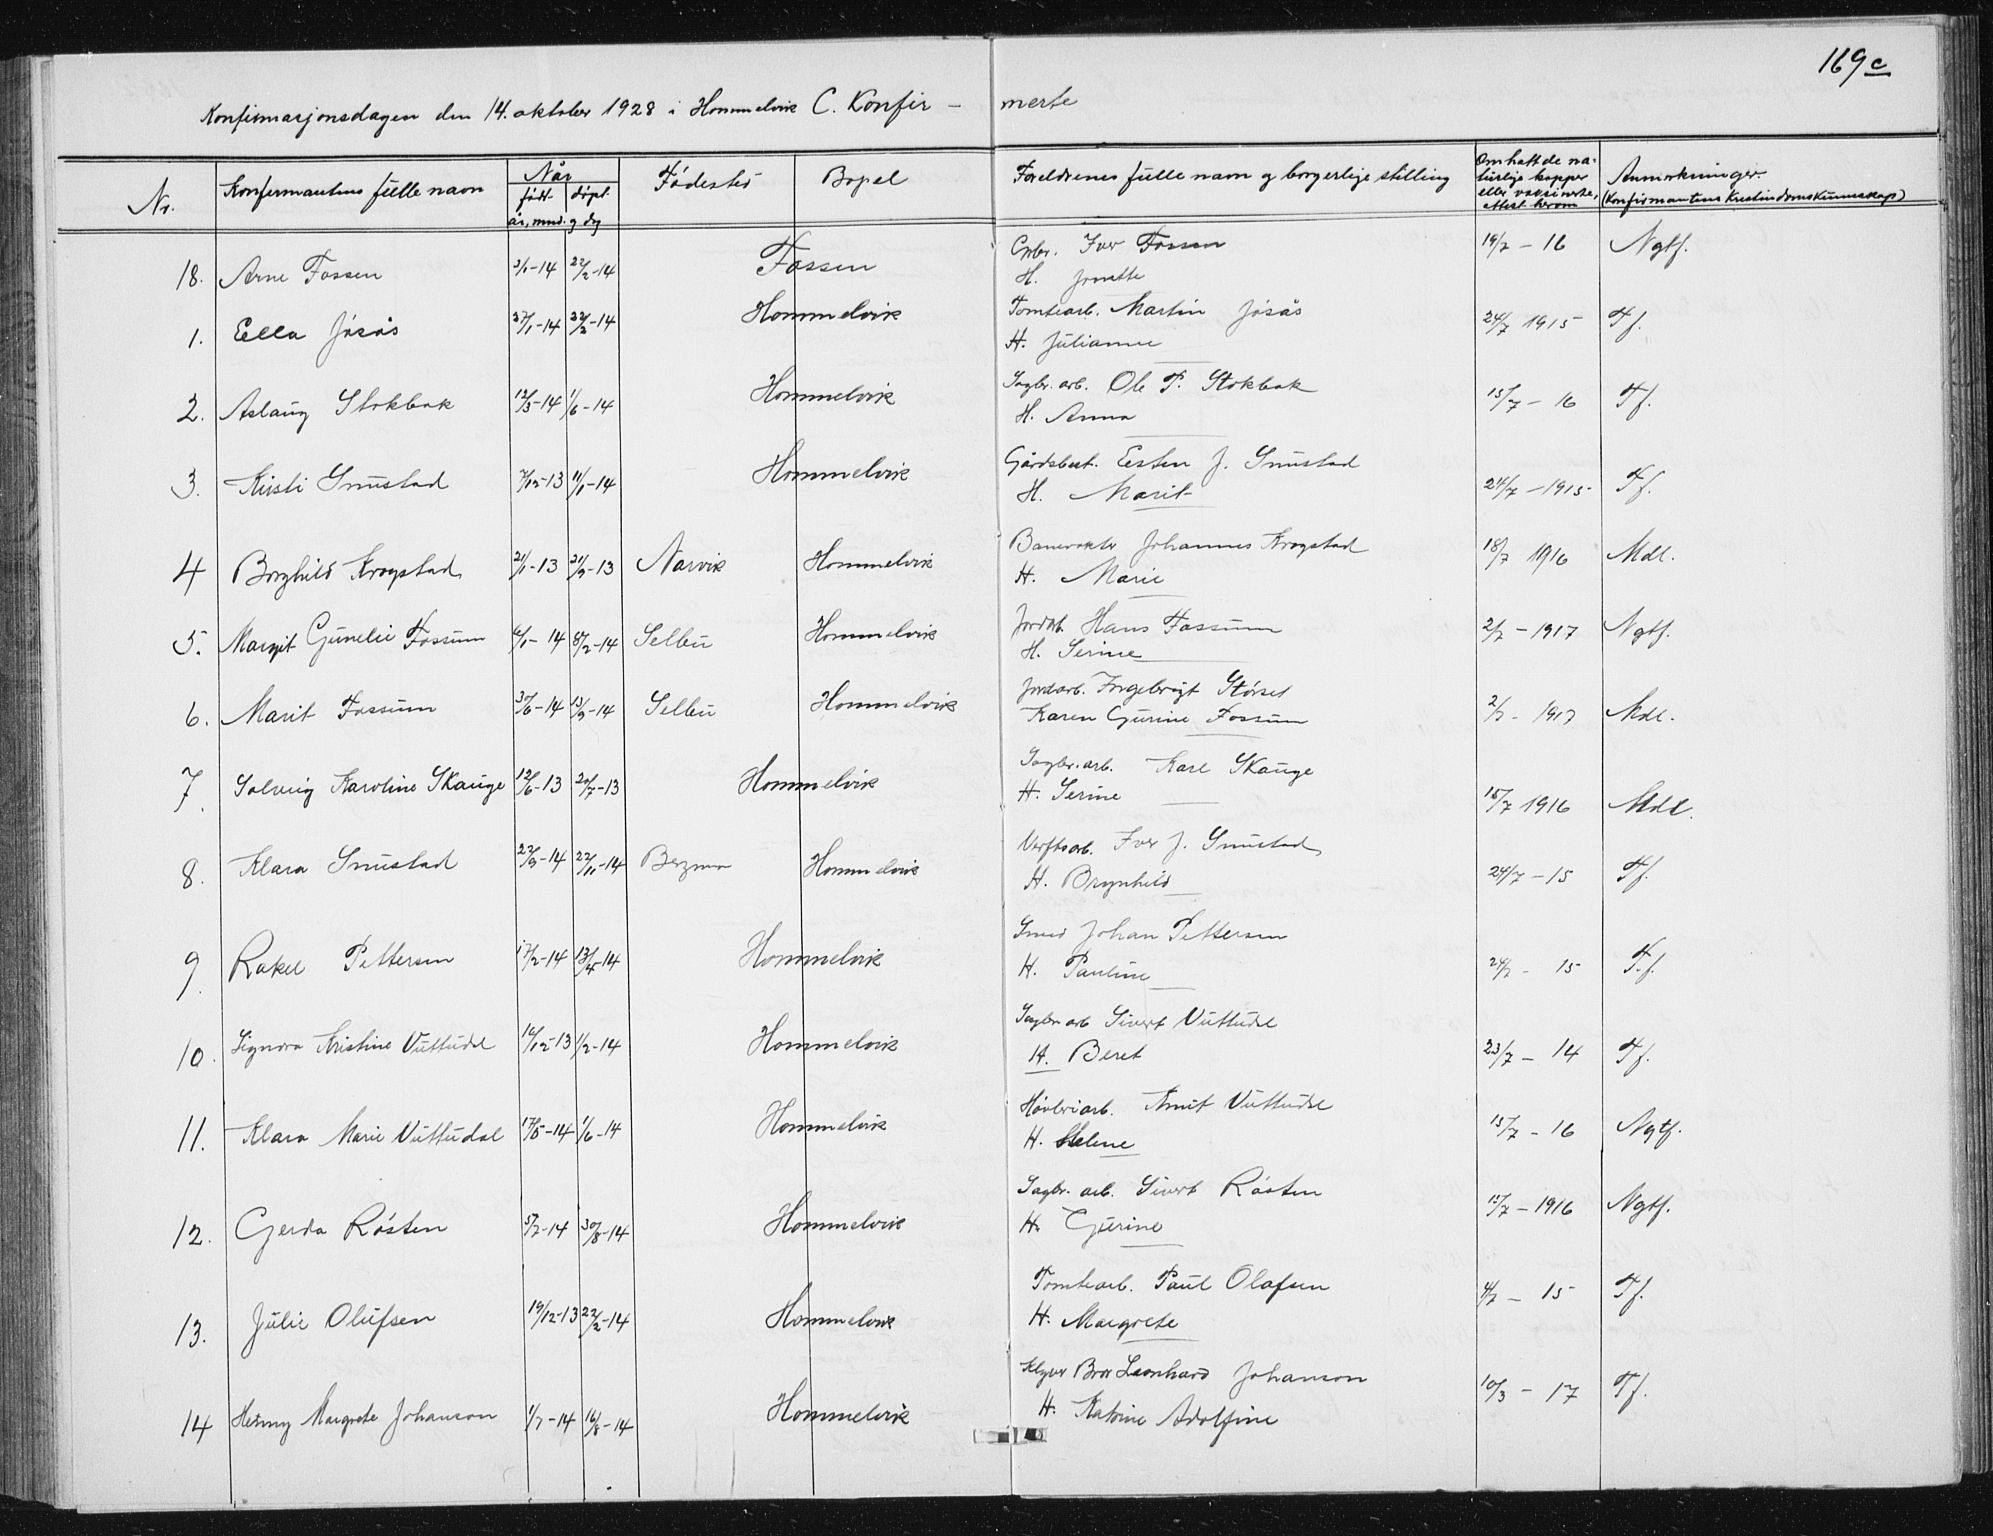 169c
Konfirmasjonsdagen den 14. oktober 1928 i Hommelvik C. Konfir - merte
Nr. Konfirmantens fulle navn Når født døpt år, mnd. og dag Fødested Bopel Foreldrenes fulle navn og borgerlige stilling Om hatt de naturlige kopper eller vaksinerte, attest herom Anmerkninger. (Konfirmantens Kristendomskunnskap)
18. Arne Fossen 3/1-14 22/2-14 Fossen Grbr. Iver Fossen 19/7 - 16 Ngtf.
H. Jonette
1. Ella Jøsås 27/1-14 22/2-14 Hommelvik Tomtearb. Martin Jøsås 24/7 1915 Tf.
H. Julianne
2. Aslaug Stokbak 12/3-14 1/6-14 Hommelvik Sagbr. arb. Ole P. Stokbak 15/7 - 16 Tf.
H. Anna
3. Kirsti Snustad 7/12-13 11/1-14 Hommelvik Gårdsbest. Esten J. Snustad 24/7 - 1915 Tf.
H. Marit
4 Borghild Krogstad 21/1-13 21/9-13 Narvik Hommelvik Banevokter Johannes Krogstad 18/7 1916 Mdl.
H. Marie
5. Margit Gunelie Fossum 6/1-14 8/2-14 Selbu Hommelvik Jordarb. Hans Fossum 2/7 - 1917 Ngtf.
H. Serine
6. Marit Fossum 30/6-14 13/9-14 Selbu Hommelvik Jordarb. Ingebrigt Størset 2/7 - 1917 Mdl.
Karen Gurine Fossum
7. Solveig Karoline Skauge 12/6-13 20/7-13 Hommelvik Sagbr. arb. Karl Skauge 15/7 1916 Mdl.
H. Serine
8. Klara Snustad 23/9-14 22/11-14 Hommelvik Verftsarb. Iver J. Snustad 24/7 - 15 Tf.
H. Brynhild
9. Rakel Pettersen 17/2-14 13/4-14 Hommelvik Smed Johan Pettersen 24/7 - 15 T.f.
H. Pauline
10. Signora Kristine Vuttudal 16/12-13 1/2-14 Hommelvik Sagbr. arb Sivert Vuttudal 23/7 - 14 Tf.
H. Beret
11. Klara Marie Vuttudal 17/5-14 1/6-14 Hommelvik Høvleriarb. Arnt Vuttudal 15/7 - 16 Ngtf.
H. Helene
12. Gerda Røsten 5/7-14 30/8-14 Hommelvik Sagbr. arb. Sivert Røsten 15/7 - 1916 Ngtf.
H. Gurine
13. Julie Olufsen 19/12-13 22/2-14 Hommelvik Tomtearb. Paul Olafsen 4/7 - 15 Tf.
H. Margrete
14 Henny Margrete Johanson 1/7-14 16/8-14 Hommelvik Klyver Bror Leonhard Johanson 10/3 - 17 Tf.
H. Katrine Adolfine